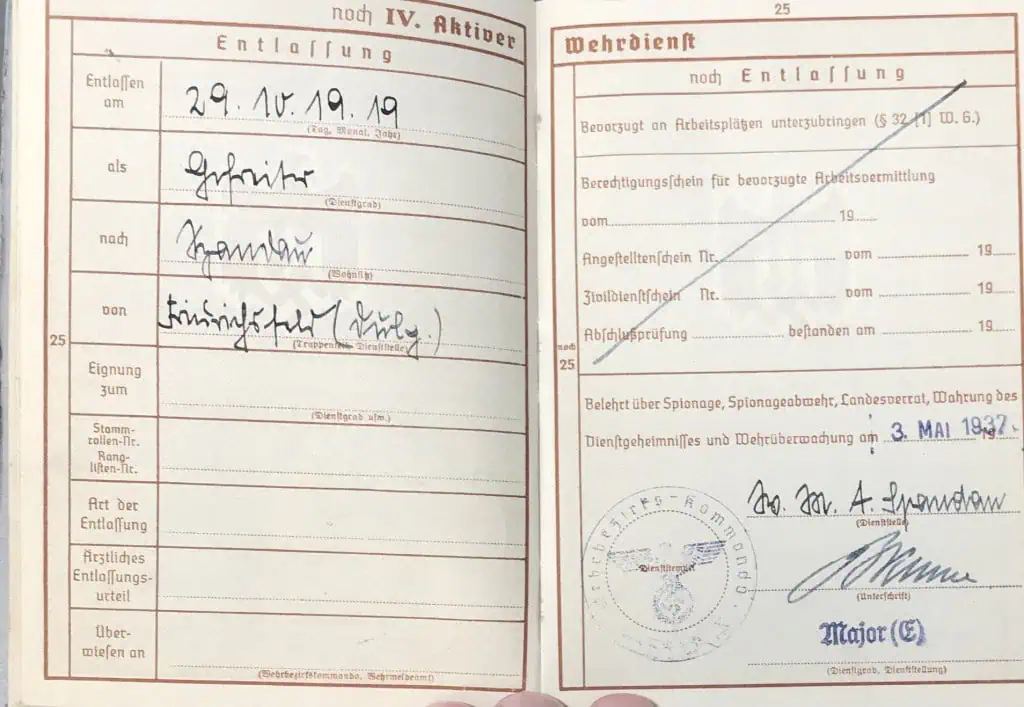 noch IV. Aktiver
Entlassung
Entlassen am
29. 10. 19.19
(Tag, Monat, Jahr)
als
Gefreiter
(Dienstgrad)
nach
Spandau
(Wohnsitz)
von
Friedrichsfeld (Dulg.)
(Truppenteil, Dienststelle)
25
Eignung zum
(Dienstgrad usw.)
Stamm-
rollen-Nr.
Rang-
listen-Nr.
Art der
Entlassung
Ärztliches
Entlassungs-
urteil
Über-
wiesen an
(Wehrbezirkskommando, Wehrmeldeamt)
25
Wehrdienst
noch Entlassung
Bevorzugt an Arbeitsplätzen unterzubringen (§ 32 [1] W. G.)
Berechtigungsschein für bevorzugte Arbeitsvermittlung
vom 19
Angestelltenschein Nr. vom 19
Zivildienstschein Nr. vom 19
Abschlußprüfung bestanden am 19
noch
25
Belehrt über Spionage, Spionageabwehr, Landesverrat, Wahrung des
Dienstgeheimnisses und Wehrüberwachung am 3. MAI 1937.
W. M. A. Spandau
(Dienststelle)
Wehrbezirks-Kommando
Dienststempel
(Unterschrift)
Major (E)
(Dienstgrad, Dienststellung)